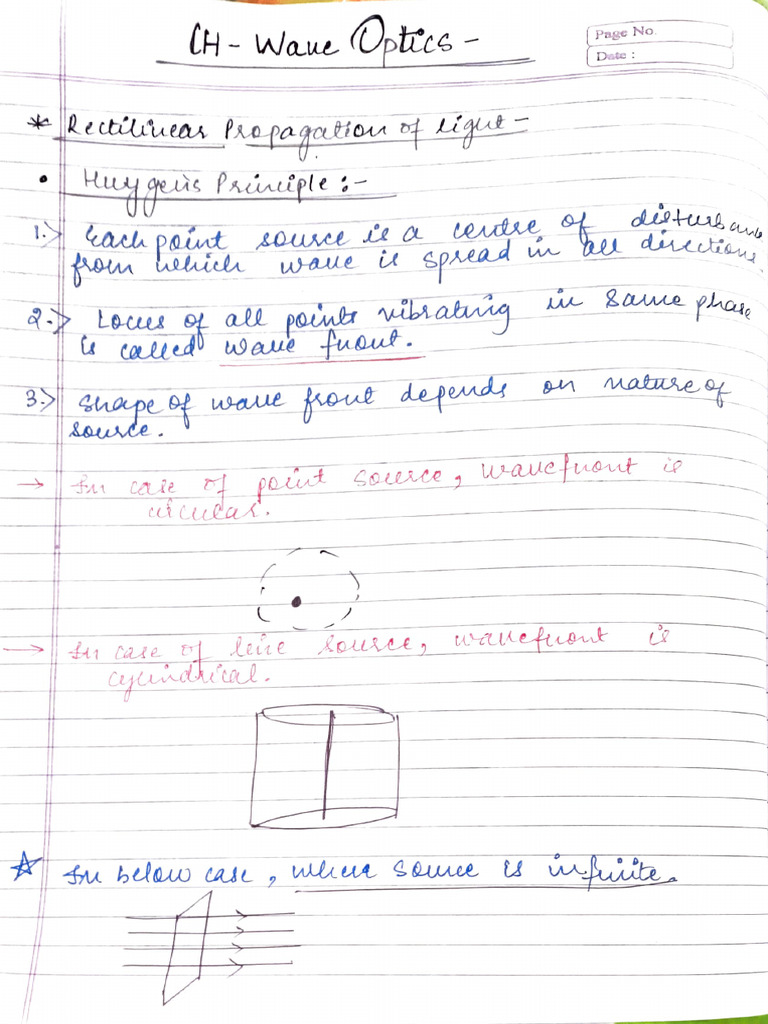 CH - Wave Optics -
Page No.
Date :
* Rectilinear Propagation of light -
• Huygens Principle :-
1.> Each point source is a centre of disturbance
from which wave is spread in all directions.
2.> Locus of all points vibrating in same phase
is called wave front.
3.> Shape of wave front depends on nature of
source.
→ In case of point source, wavefront is
circular.
→ In case of line source, wavefront is
cylindrical.
☆ In below case, where source is infinite.